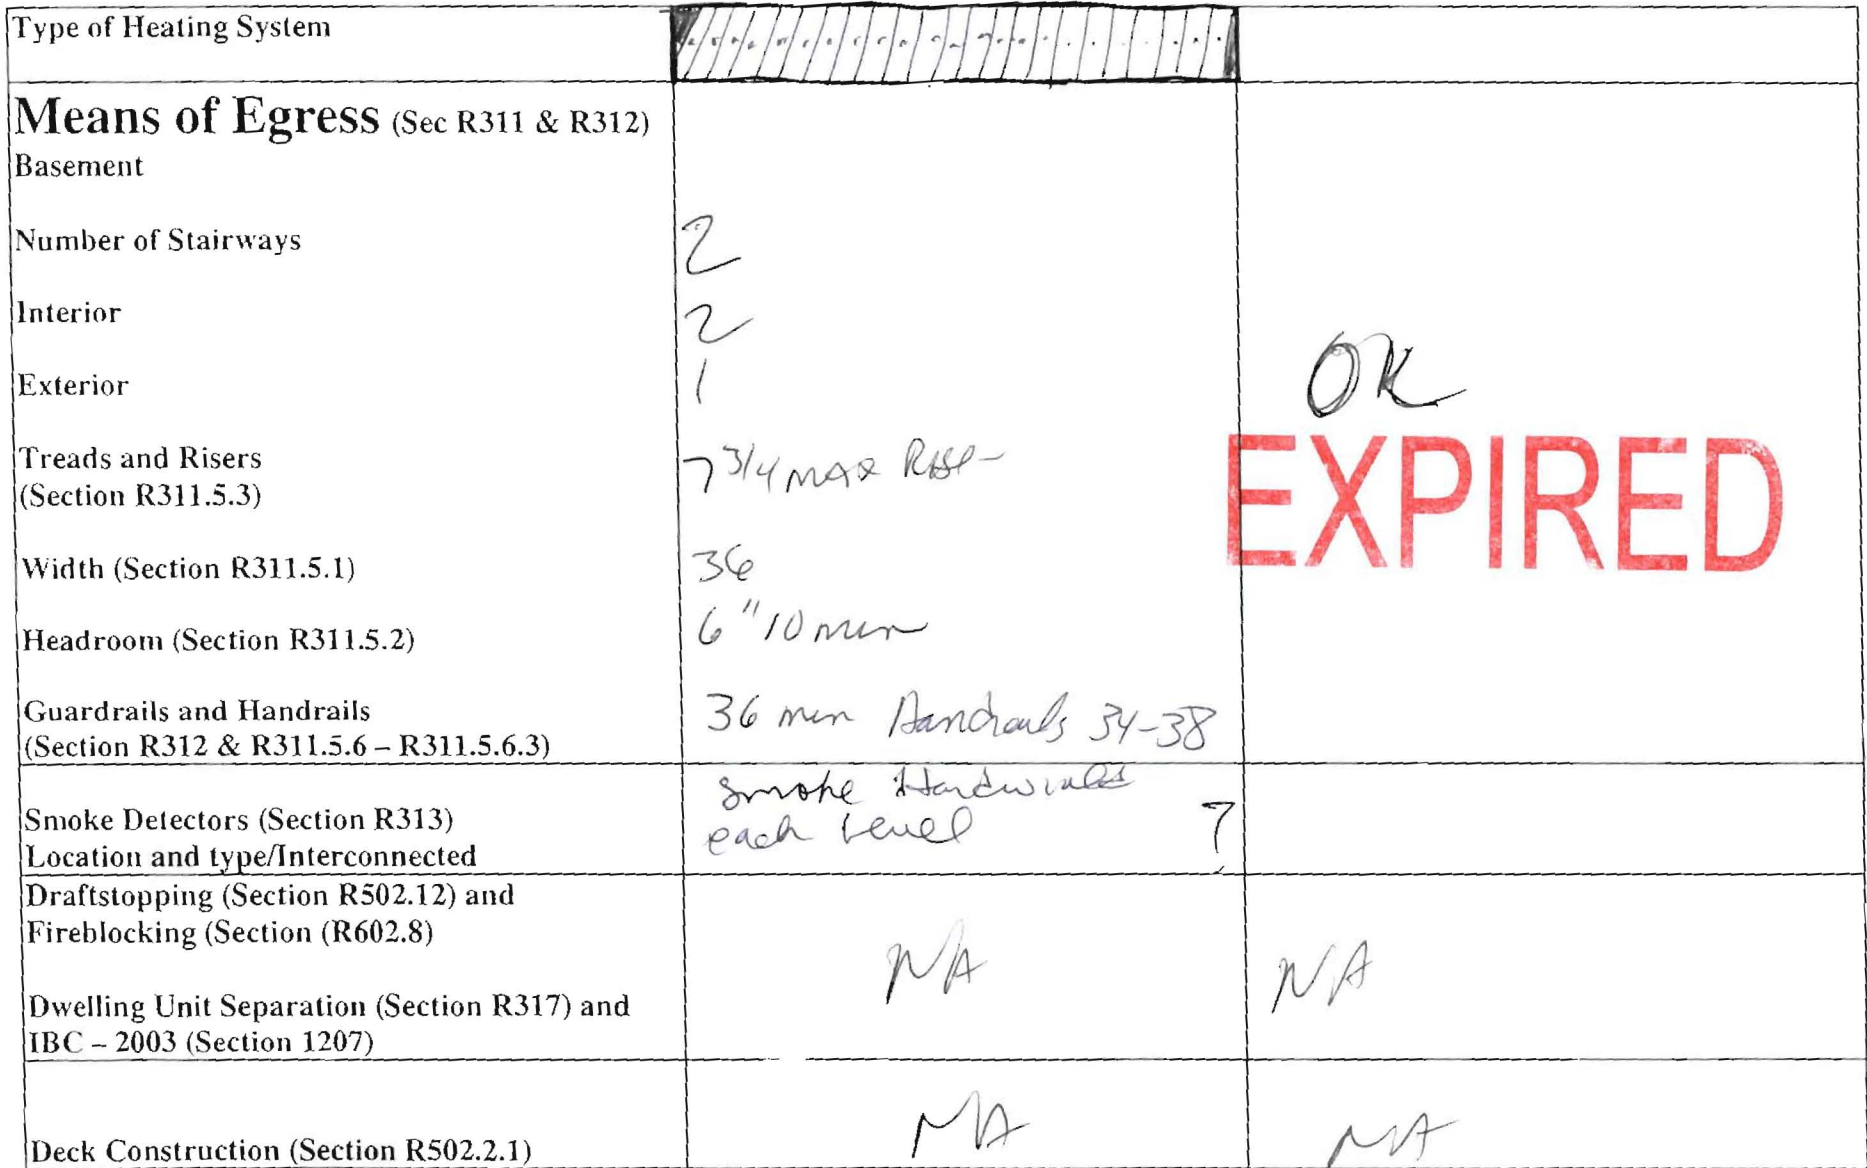 Type of Heating System
Means of Egress (Sec R311 & R312)
Basement
Number of Stairways
2
Interior
2
Exterior
1
OK
Treads and Risers
(Section R311.5.3)
7 3/4 MAX Rise
EXPIRED
Width (Section R311.5.1)
36
Headroom (Section R311.5.2)
6"10 min
Guardrails and Handrails
(Section R312 & R311.5.6 – R311.5.6.3)
36 min Handrails 34-38
Smoke Detectors (Section R313)
Location and type/Interconnected
Smoke Hardwired
each Level ?
Draftstopping (Section R502.12) and
Fireblocking (Section (R602.8)
NA NA
Dwelling Unit Separation (Section R317) and
IBC – 2003 (Section 1207)
Deck Construction (Section R502.2.1)
NA NA